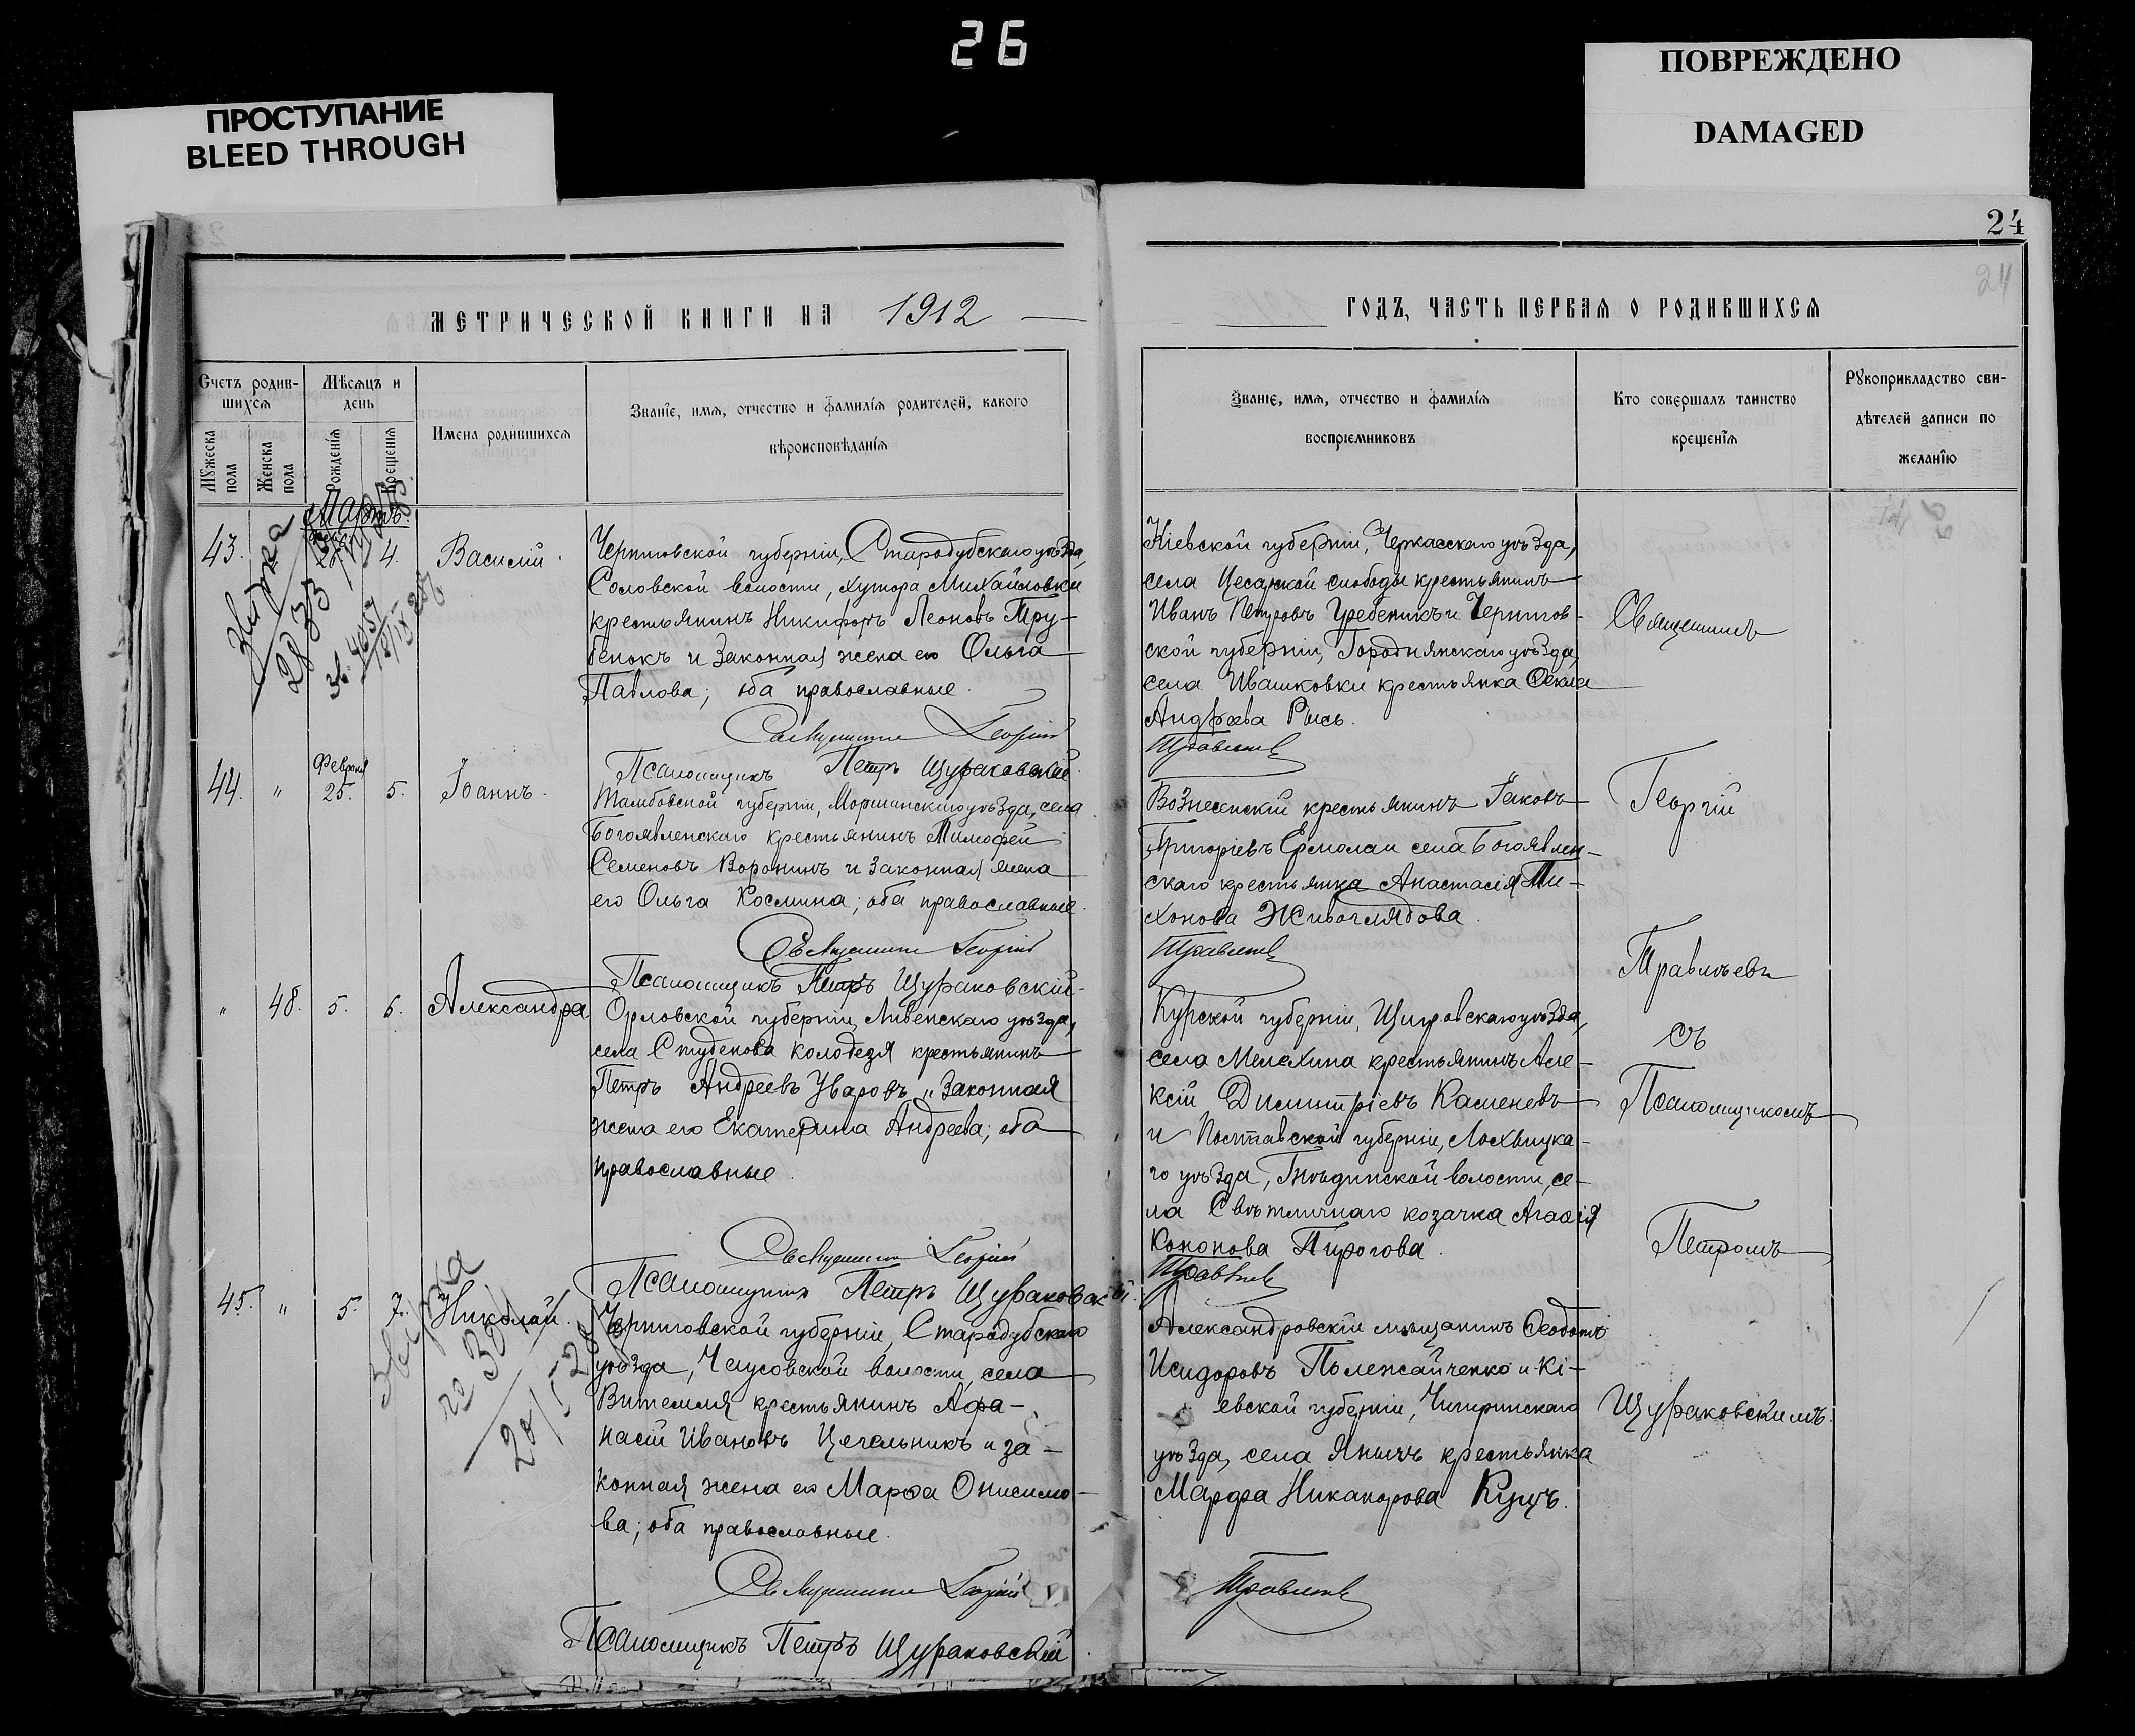 26
ПРОСТУПАНИЕ
BLEED THROUGH
ПОВРЕЖДЕНО
DAMAGED
24
24
МЕТРИЧЕСКОЙ КНИГИ НА 1912
ГОДЪ, ЧАСТЬ ПЕРВАЯ О РОДИВШИХСЯ
Счетъ родив-
шихся
Мѣсяцъ и
день
Мужеска
пола
Женска
пола
Рожденія
Крещенія
Имена родившихся
Званіе, имя, отчество и фамилія родителей, какого
вѣроисповѣданія
Званіе, имя, отчество и фамилія
воспріемниковъ
Кто совершалъ таинство
крещенія
Рукоприкладство сви-
дѣтелей записи по
желанію
Мартъ.
43.
4.
Василій.
Черниговской губерніи, Стародубскаго уѣзда,
Соловской волости, хутора Михайловки
крестьянинъ Никифоръ Леоновъ Тру-
бенокъ и законная жена его Ольга
Павлова; оба православные.
Священникъ Георгій
Псаломщикъ Петръ Щураковскій
Кіевской губерніи, Черкасскаго уѣзда,
села Цесарской слободы крестьянинъ
Иванъ Петровъ Гребеникъ и Чернигов-
ской губерніи, Городнянскаго уѣзда,
села Ивашковки крестьянка Ѳекла
Андреева Рысь.
Травлѣевъ
44. " Февраля 25. 5. Іоаннъ.
Тамбовской губерніи, Моршанскаго уѣзда, села
Богоявленскаго крестьянинъ Тимофей
Семеновъ Воронинъ и законная жена
его Ольга Космина; оба православные.
Священникъ Георгій
Псаломщикъ Петръ Щураковскій
Вознесенскій крестьянинъ Іаковъ
Григорьевъ Ермолаи села Богоявлен-
скаго крестьянка Анастасія Ти-
хонова Живоглядова.
Травлѣевъ
" 48. 5. 6. Александра.
Орловской губерніи, Ливенскаго уѣзда,
села Студенова Колодезя крестьянинъ
Петръ Андреевъ Уваровъ и законная
жена его Екатерина Андреева; оба
православные.
Священникъ Георгій
Псаломщикъ Петръ Щураковскій
Курской губерніи, Щигровскаго уѣзда,
села Мелехина крестьянинъ Але-
ксій Димитріевъ Каменевъ
и Полтавской губерніи, Лохвицка-
го уѣзда, Гнѣдинской волости, се-
ла Свѣтличнаго козачка Агаѳія
Кононова Пирогова.
Травлѣевъ
45. " 5. 7. Николай.
Черниговской губерніи, Стародубскаго
уѣзда, Чаусовской волости, села
Витемля крестьянинъ Афа-
насій Ивановъ Цегельникъ и за-
конная жена его Марѳа Онисимо-
ва; оба православные.
Священникъ Георгій
Псаломщикъ Петръ Щураковскій
Александровскій мѣщанинъ Ѳеодотъ
Исидоровъ Полежайченко и Кі-
евской губерніи, Чигиринскаго
уѣзда, села Янычъ крестьянка
Марфа Никанорова Куцъ.
Травлѣевъ
Священникъ
Георгій
Травлѣевъ
съ
Псаломщикомъ
Петромъ
Щураковскимъ.